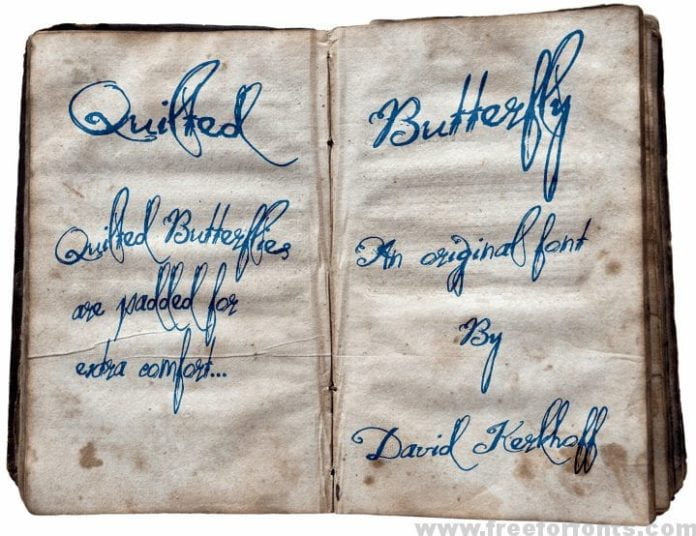 Quilted
Quilted Butterflies
are padded for
extra comfort...
Butterfly
An original font
By
David Kerkhoff
www.freeforfonts.com